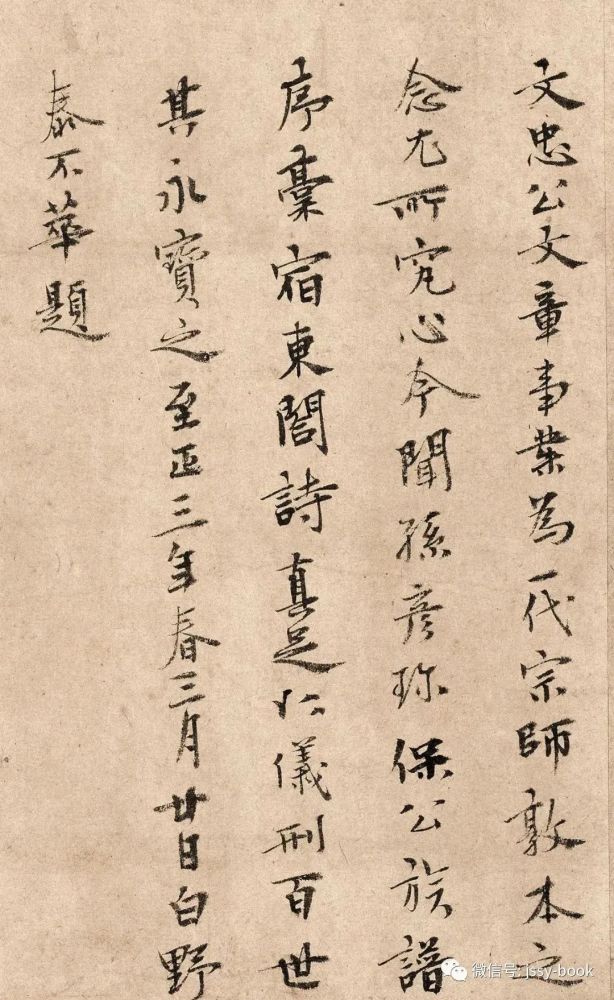 文忠公文章事業為一代宗師敦本之
念尤所究心今聞孫彦珎保公族譜
序稾宿東閤詩真足以儀刑百世
其永寶之至正三年春三月廿日白野
泰不華題
微信号: jssy-book